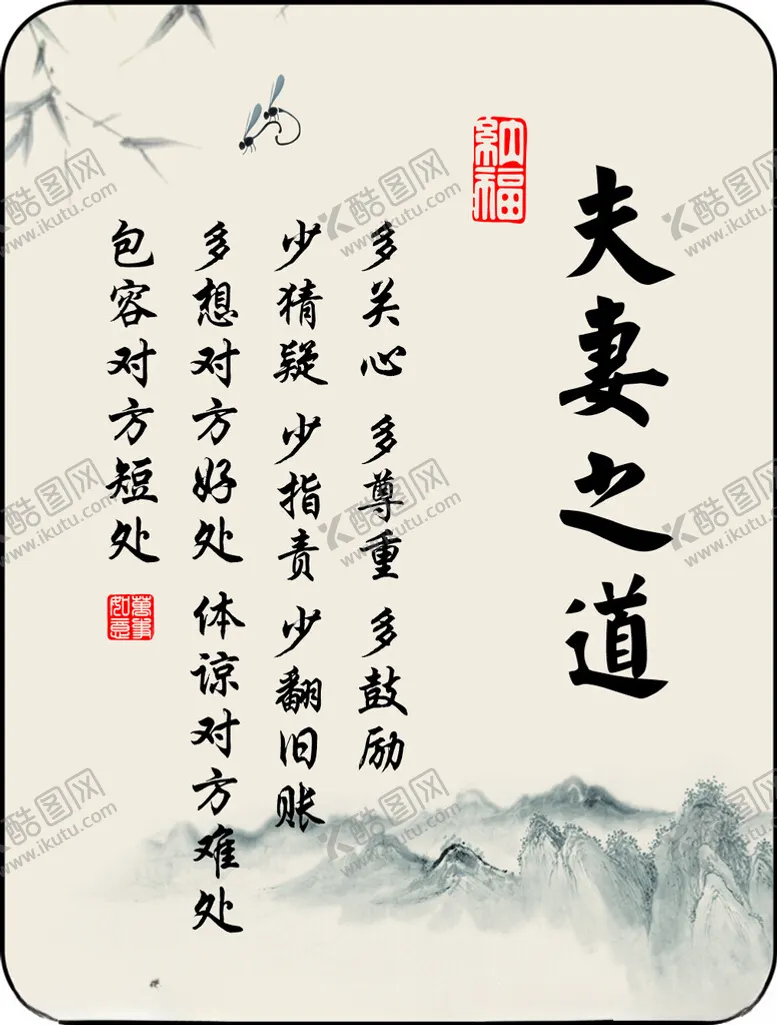 夫妻之道
纳福
多关心 多尊重 多鼓励
少猜疑 少指责 少翻旧账
多想对方好处 体谅对方难处
包容对方短处
萬事
如意
酷图网
www.ikutu.com